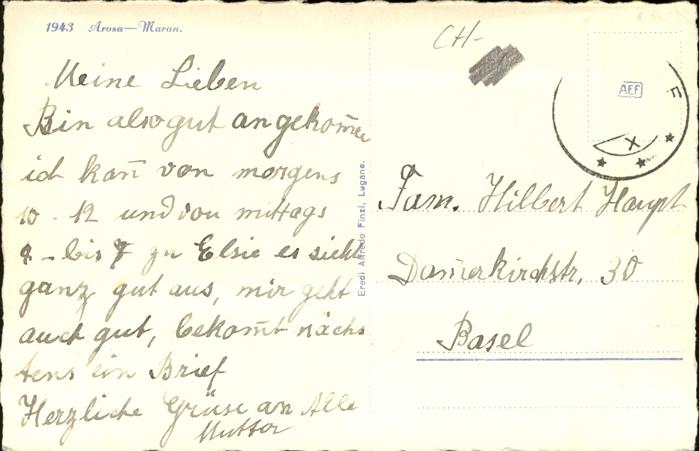 1943 Arosa—Maran.
Meine Lieben
Bin also gut angekom̅en
ich kan̅ von morgens
10 - 12 und von mittags
- bis 7 zu Elsie es sieht
ganz gut aus, mir geht
auch gut, bekom̅t nächs
tens ein Brief
Herzliche Grüse an Alle
Mutter
Eredi Alfredo Finzi, Lugano.
CH-
AEF
E
X
Fam. Hilbert Haupt
Dam̅erkirchstr, 30
Basel